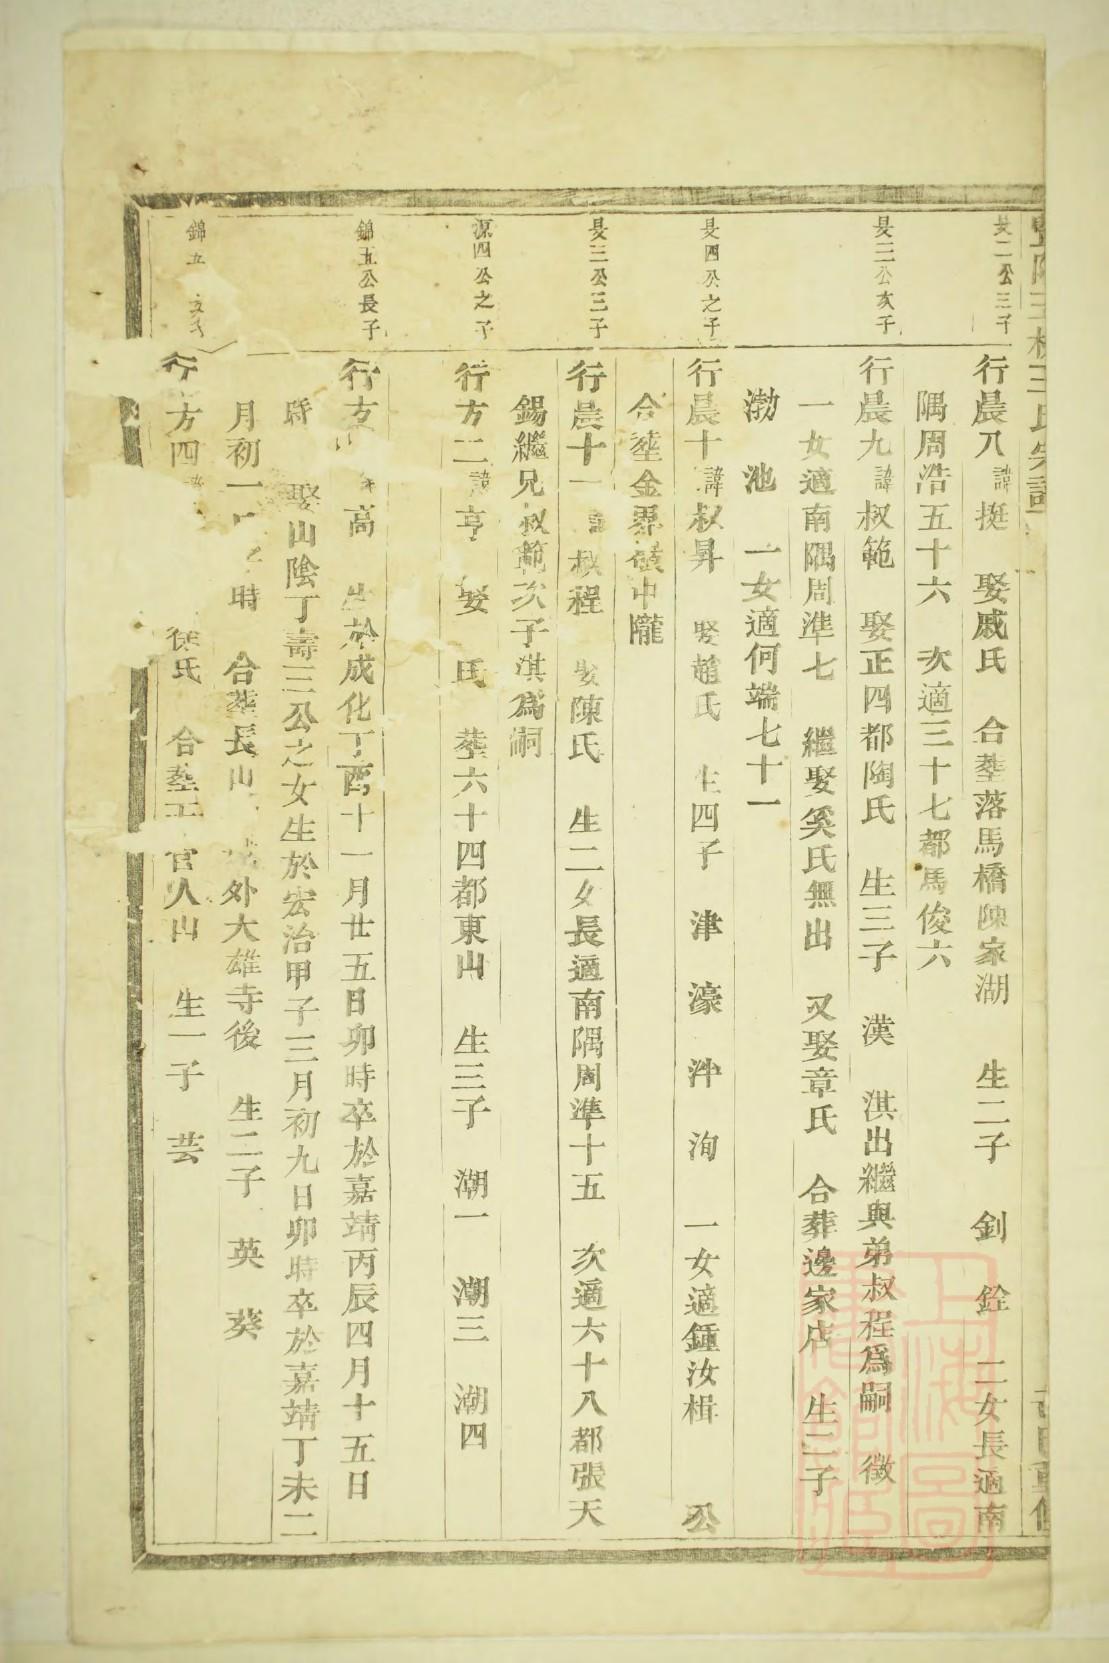 三公三子
行晨八諱挺 娶戚氏 合塟落馬橋陳家湖 生二子 釗 銓 二女長適南
隅周浩五十六 次適三十七都馬俊六
三公次子
行晨九諱叔範 娶正四都陶氏 生三子 漢 淇出繼與弟叔程爲嗣 徵
一女適南隅周準七 繼娶奚氏無出 又娶章氏 合葬邊家店 生二子
渤 池 一女適何端七十一
四公之子
行晨十諱叔昇 娶趙氏 生四子 津 濠 沖 洵 一女適鍾汝楫 公
合塟金 中隴
三公三子
行晨十一 叔程 娶陳氏 生二女長適南隅周準十五 次適六十八都張天
錫繼兄叔範次子淇爲嗣
源四公之子
行方二諱亨 娶 氏 塟六十四都東山 生三子 潮一 潮三 潮四
錦五公長子
行方 高 生於成化丁酉十一月廿五日卯時卒於嘉靖丙辰四月十五日
時 娶山陰丁壽三公之女生於宏治甲子三月初九日卯時卒於嘉靖丁未二
月初一 時 合塟長山 外大雄寺後 生二子 英 葵
錦五
行方四 徐氏 合塟 官人山 生一子 芸